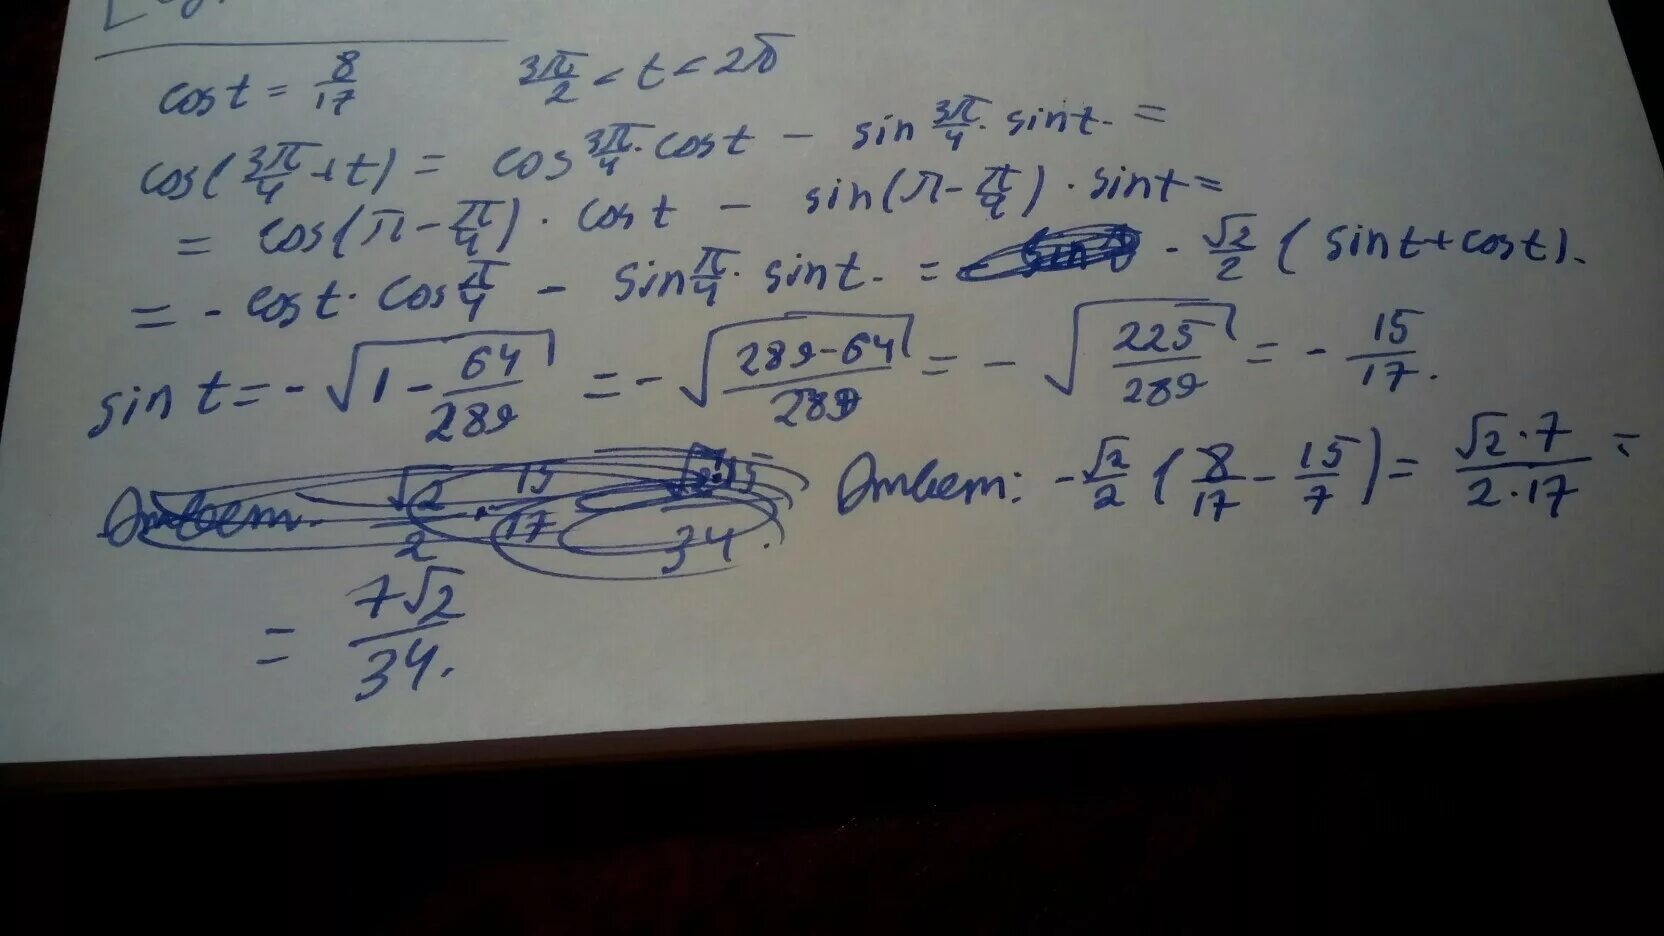 cos t = 8/17    3π/2 < t < 2π
cos(3π/4 + t) = cos 3π/4 · cos t - sin 3π/4 · sin t. =
= cos(π - π/4) · cos t - sin(π - π/4) · sin t =
= - cos t · cos π/4 - sin π/4 · sin t. = - √2/2 (sin t + cos t).
sin t = - √(1 - 64/289) = - √((289-64)/289) = - √(225/289) = - 15/17.
Ответ: - √2/2 (8/17 - 15/7) = (√2 · 7)/(2 · 17) =
= 7√2/34.